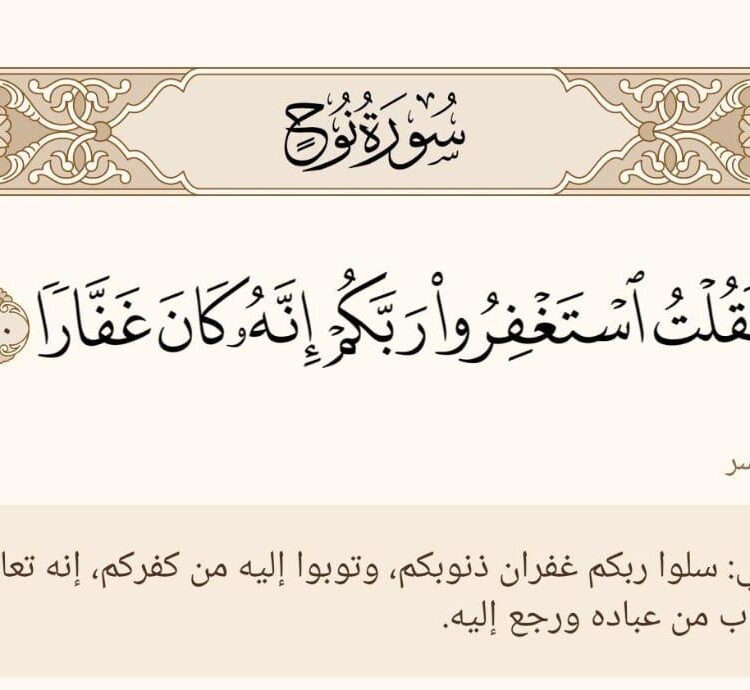 سُورَةُ نُوحٍ
فَقُلْتُ ٱسْتَغْفِرُوا۟ رَبَّكُمْ إِنَّهُۥ كَانَ غَفَّارًا
سلوا ربكم غفران ذنوبكم، وتوبوا إليه من كفركم، إنه
من عباده ورجع إليه.